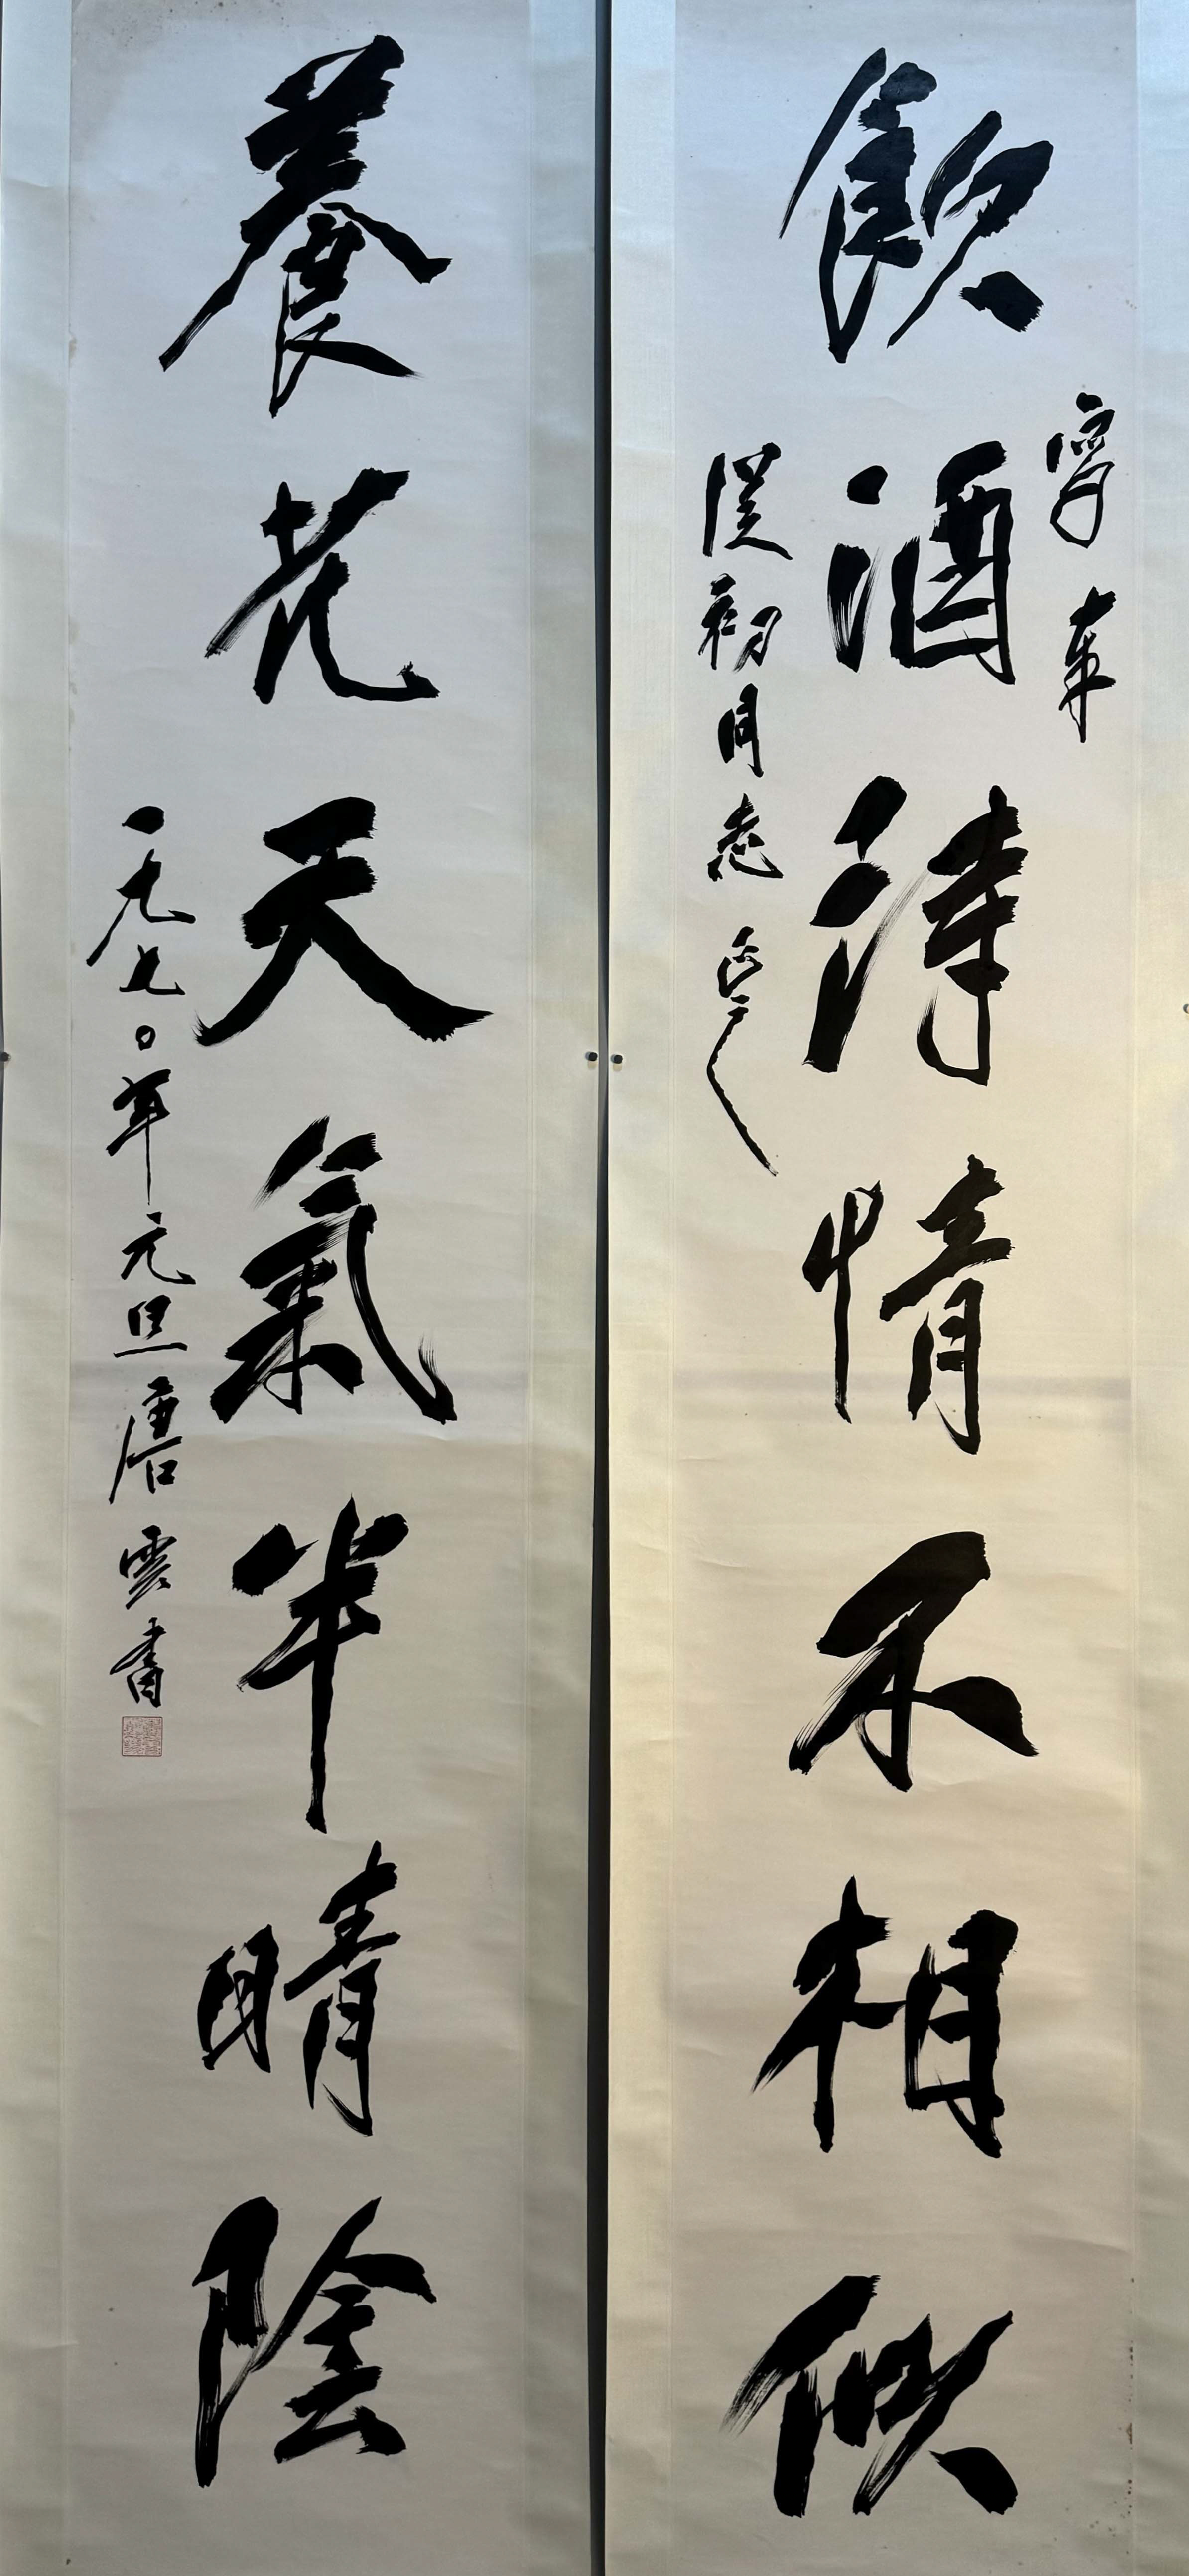 飲酒詩情不相似
寫奉
樸初同志正之
養花天氣半晴陰
一九七〇年元旦唐雲書